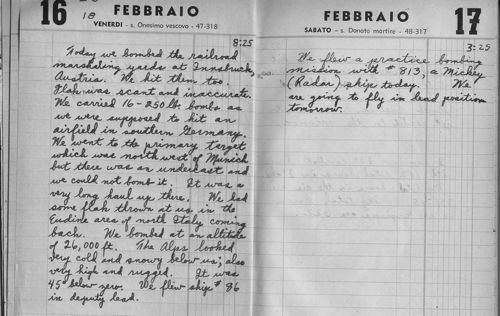 16
18
FEBBRAIO
VENERDI - s. Onesimo vescovo - 47-318
8:25
Today we bombed the railroad
marshaling yards at Innsbruck,
Austria. We hit them too.
Flak was scant and inaccurate.
We carried 16-250 lb. bombs as
we were supposed to hit an
airfield in southern Germany.
We went to the primary target
which was north west of Munich
but there was an undercast and
we could not bomb it. It was a
very long haul up there. We had
some flak thrown at us in the
Eudine area of north Italy coming
back. We bombed at an altitude
of 26,000 ft. The Alps looked
very cold and snowy below us; also
very high and rugged. It was
45 below zero. We flew ship # 86
in deputy lead.
FEBBRAIO
17
SABATO - s. Donato martire - 48-317
3:25
We flew a practice bombing
mission with # 813, a Mickey
(Radar) ship today. We
are going to fly in lead position
tomorrow.